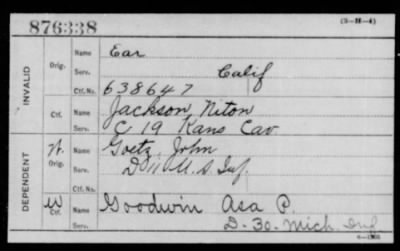 876338
(3-H-4)
INVALID
Orig.
Name Ear
Serv. Calif
Ctf. No. 638647
Ctf.
Name Jackson Niton
Serv. C 19 Kans Cav
DEPENDENT
W. Orig.
Name Goetz, John
Serv. D 11 U.S. Inf.
Ctf. No.
W Ctf.
Name Goodwin Asa P.
Serv. D-30-Mich Inf